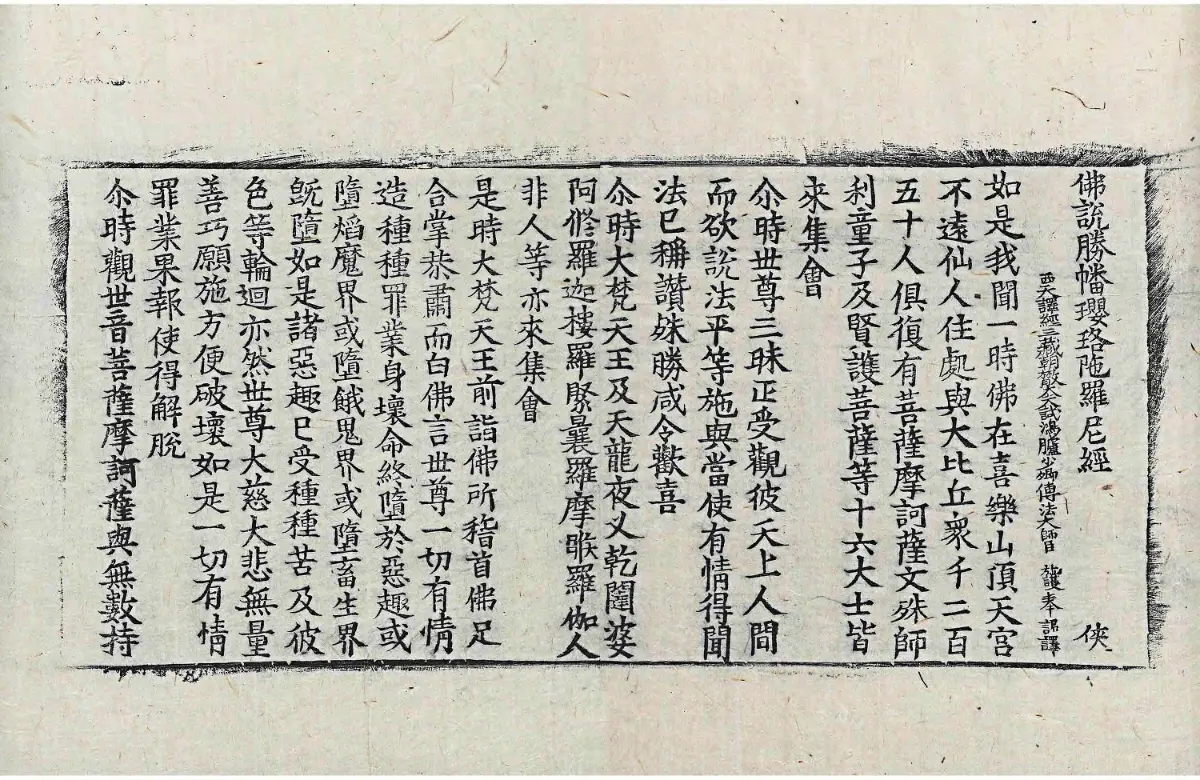 佛說勝幡瓔珞陁羅尼經 俠
西天譯經三藏朝散大夫試鴻臚少卿傳法大師臣施護奉 詔譯
如是我聞一時佛在喜樂山頂天宮
不遠仙人住處與大比丘衆千二百
五十人俱復有菩薩摩訶薩文殊師
利童子及賢護菩薩等十六大士皆
來集會
尒時世尊三昧正受觀彼天上人間
而欲說法平等施與當使有情得聞
法已稱讚殊勝咸令歡喜
尒時大梵天王及天龍夜叉乾闥婆
阿修羅迦樓羅緊曩羅摩睺羅伽人
非人等亦來集會
是時大梵天王前詣佛所稽首佛足
合掌恭肅而白佛言世尊一切有情
造種種罪業身壞命終墮於惡趣或
墮焰魔界或墮餓鬼界或墮畜生界
旣墮如是諸惡趣已受種種苦及彼
色等輪迴亦然世尊大慈大悲無量
善巧願施方便破壞如是一切有情
罪業果報使得解脫
尒時觀世音菩薩摩訶薩與無數持